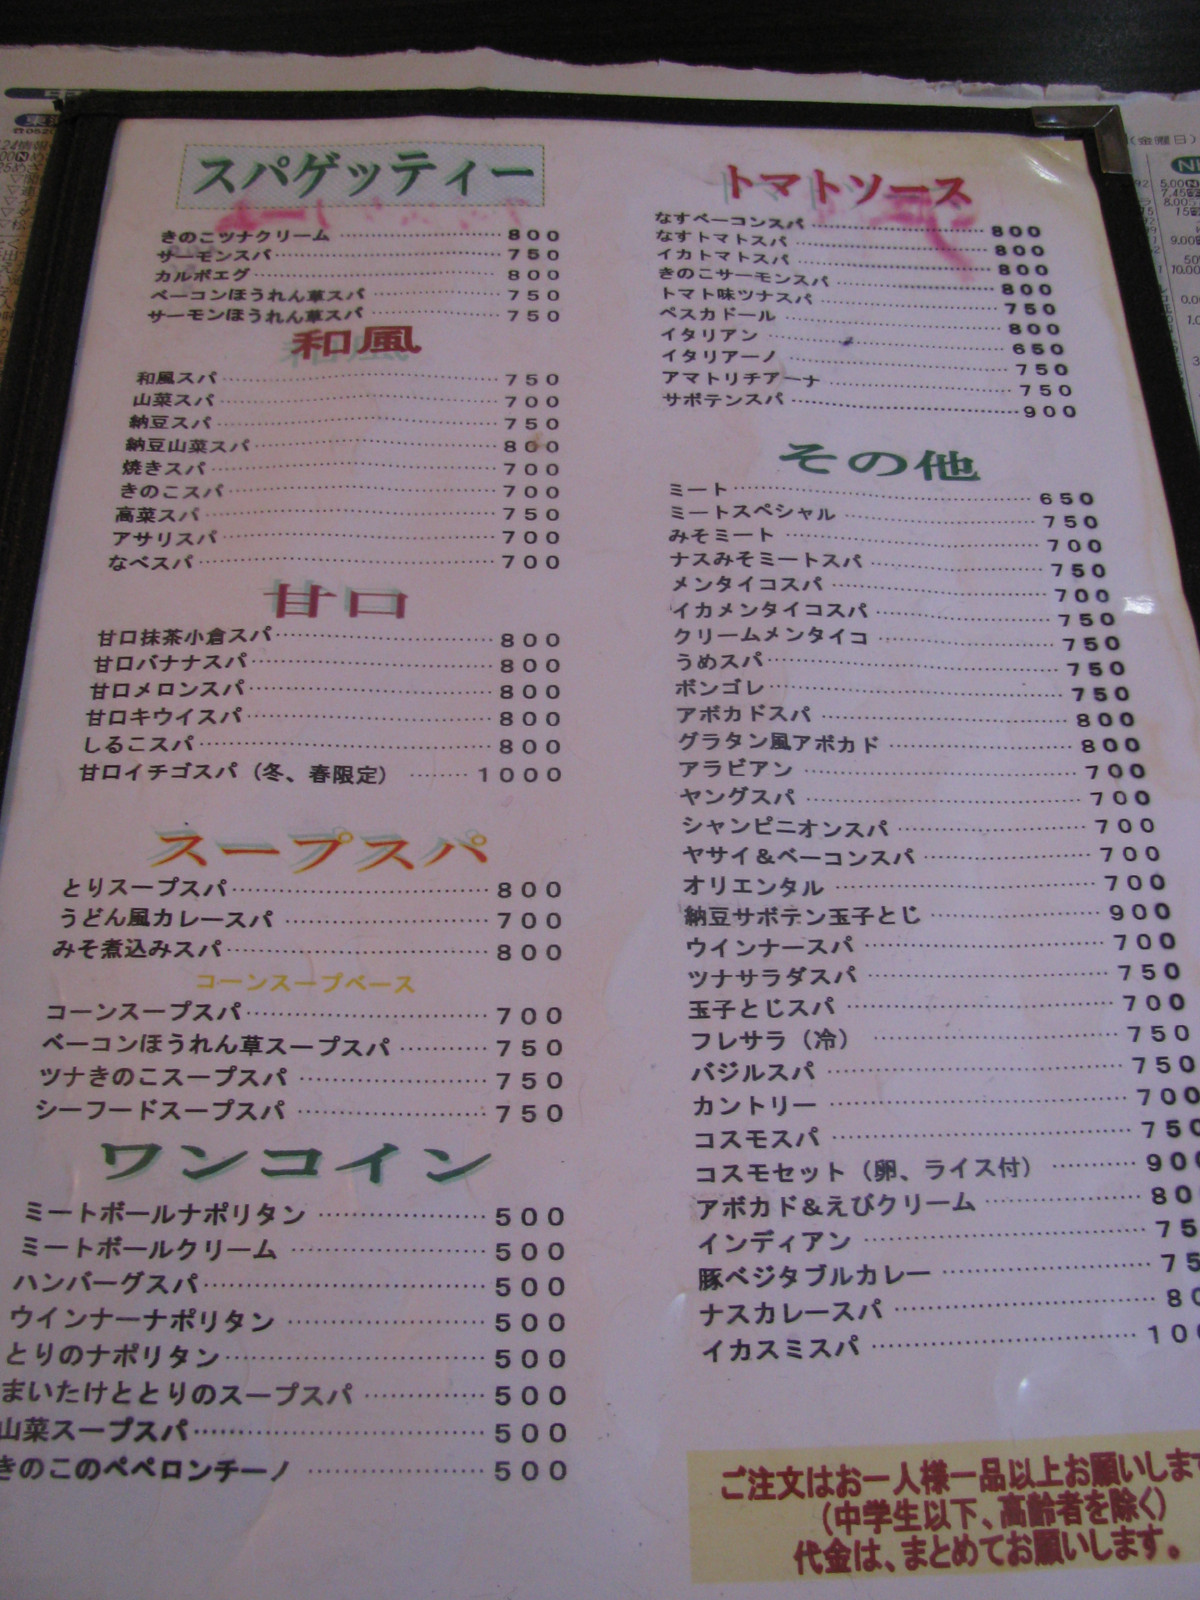 スパゲッティー
きのこツナクリーム ……… 800
サーモンスパ ……… 750
カルボエグ ……… 800
ベーコンほうれん草スパ ……… 750
サーモンほうれん草スパ ……… 750
和風
和風スパ ……… 750
山菜スパ ……… 700
納豆スパ ……… 750
納豆山菜スパ ……… 800
焼きスパ ……… 700
きのこスパ ……… 700
高菜スパ ……… 750
アサリスパ ……… 700
なべスパ ……… 700
甘口
甘口抹茶小倉スパ ……… 800
甘口バナナスパ ……… 800
甘口メロンスパ ……… 800
甘口キウイスパ ……… 800
しるこスパ ……… 800
甘口イチゴスパ（冬、春限定） ……… 1000
スープスパ
とりスープスパ ……… 800
うどん風カレースパ ……… 700
みそ煮込みスパ ……… 800
コーンスープベース
コーンスープスパ ……… 700
ベーコンほうれん草スープスパ ……… 750
ツナきのこスープスパ ……… 750
シーフードスープスパ ……… 750
ワンコイン
ミートボールナポリタン ……… 500
ミートボールクリーム ……… 500
ハンバーグスパ ……… 500
ウインナーナポリタン ……… 500
とりのナポリタン ……… 500
まいたけととりのスープスパ ……… 500
山菜スープスパ ……… 500
きのこのペペロンチーノ ……… 500
トマトソース
なすベーコンスパ ……… 800
なすトマトスパ ……… 800
イカトマトスパ ……… 800
きのこサーモンスパ ……… 800
トマト味ツナスパ ……… 750
ペスカドール ……… 800
イタリアン ……… 650
イタリアーノ ……… 750
アマトリチアーナ ……… 750
サボテンスパ ……… 900
その他
ミート ……… 650
ミートスペシャル ……… 750
みそミート ……… 700
ナスみそミートスパ ……… 750
メンタイコスパ ……… 700
イカメンタイコスパ ……… 750
クリームメンタイコ ……… 750
うめスパ ……… 750
ボンゴレ ……… 750
アボカドスパ ……… 800
グラタン風アボカド ……… 800
アラビアン ……… 700
ヤングスパ ……… 700
シャンピニオンスパ ……… 700
ヤサイ＆ベーコンスパ ……… 700
オリエンタル ……… 700
納豆サボテン玉子とじ ……… 900
ウインナースパ ……… 700
ツナサラダスパ ……… 750
玉子とじスパ ……… 700
フレサラ（冷） ……… 750
バジルスパ ……… 750
カントリー ……… 700
コスモスパ ……… 750
コスモセット（卵、ライス付） ……… 900
アボカド＆えびクリーム ……… 80
インディアン ……… 75
豚ベジタブルカレー ……… 75
ナスカレースパ ……… 80
イカスミスパ ……… 100
ご注文はお一人様一品以上お願いします
（中学生以下、高齢者を除く）
代金は、まとめてお願いします。